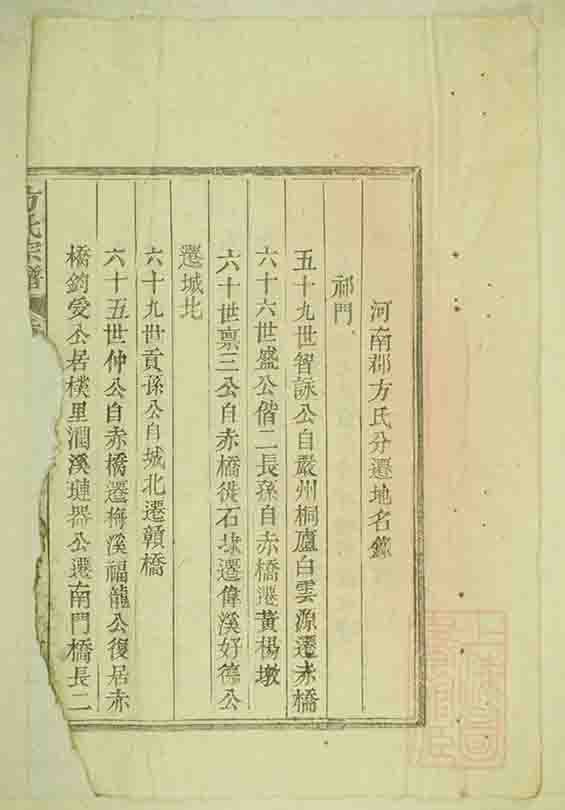 河南郡方氏分遷地名錄
祁門
五十九世智詠公自嚴州桐廬白雲源遷赤橋
六十六世盛公偕二長孫自赤橋遷黃楊墩
六十世禀三公自赤橋徙石埭遷偉溪好德公
遷城北
六十九世貢孫公自城北遷贛橋
六十五世仲公自赤橋遷梅溪福龍公復居赤
橋鈞受公居樸里潤溪璉器公遷南門橋長二
方氏宗譜